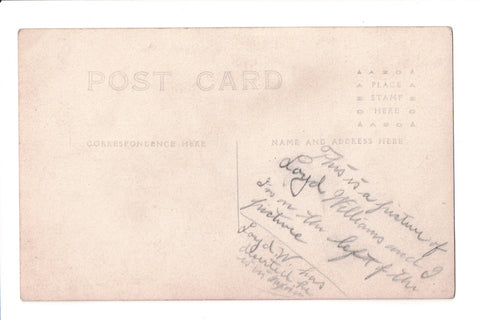 POST CARD
AZO
PLACE
STAMP
HERE
AZO
CORRESPONDENCE HERE
NAME AND ADDRESS HERE
This is a picture of
Loyd Williams and I
I'm on the left of the
picture
Loyd W. has
deserted he
is in